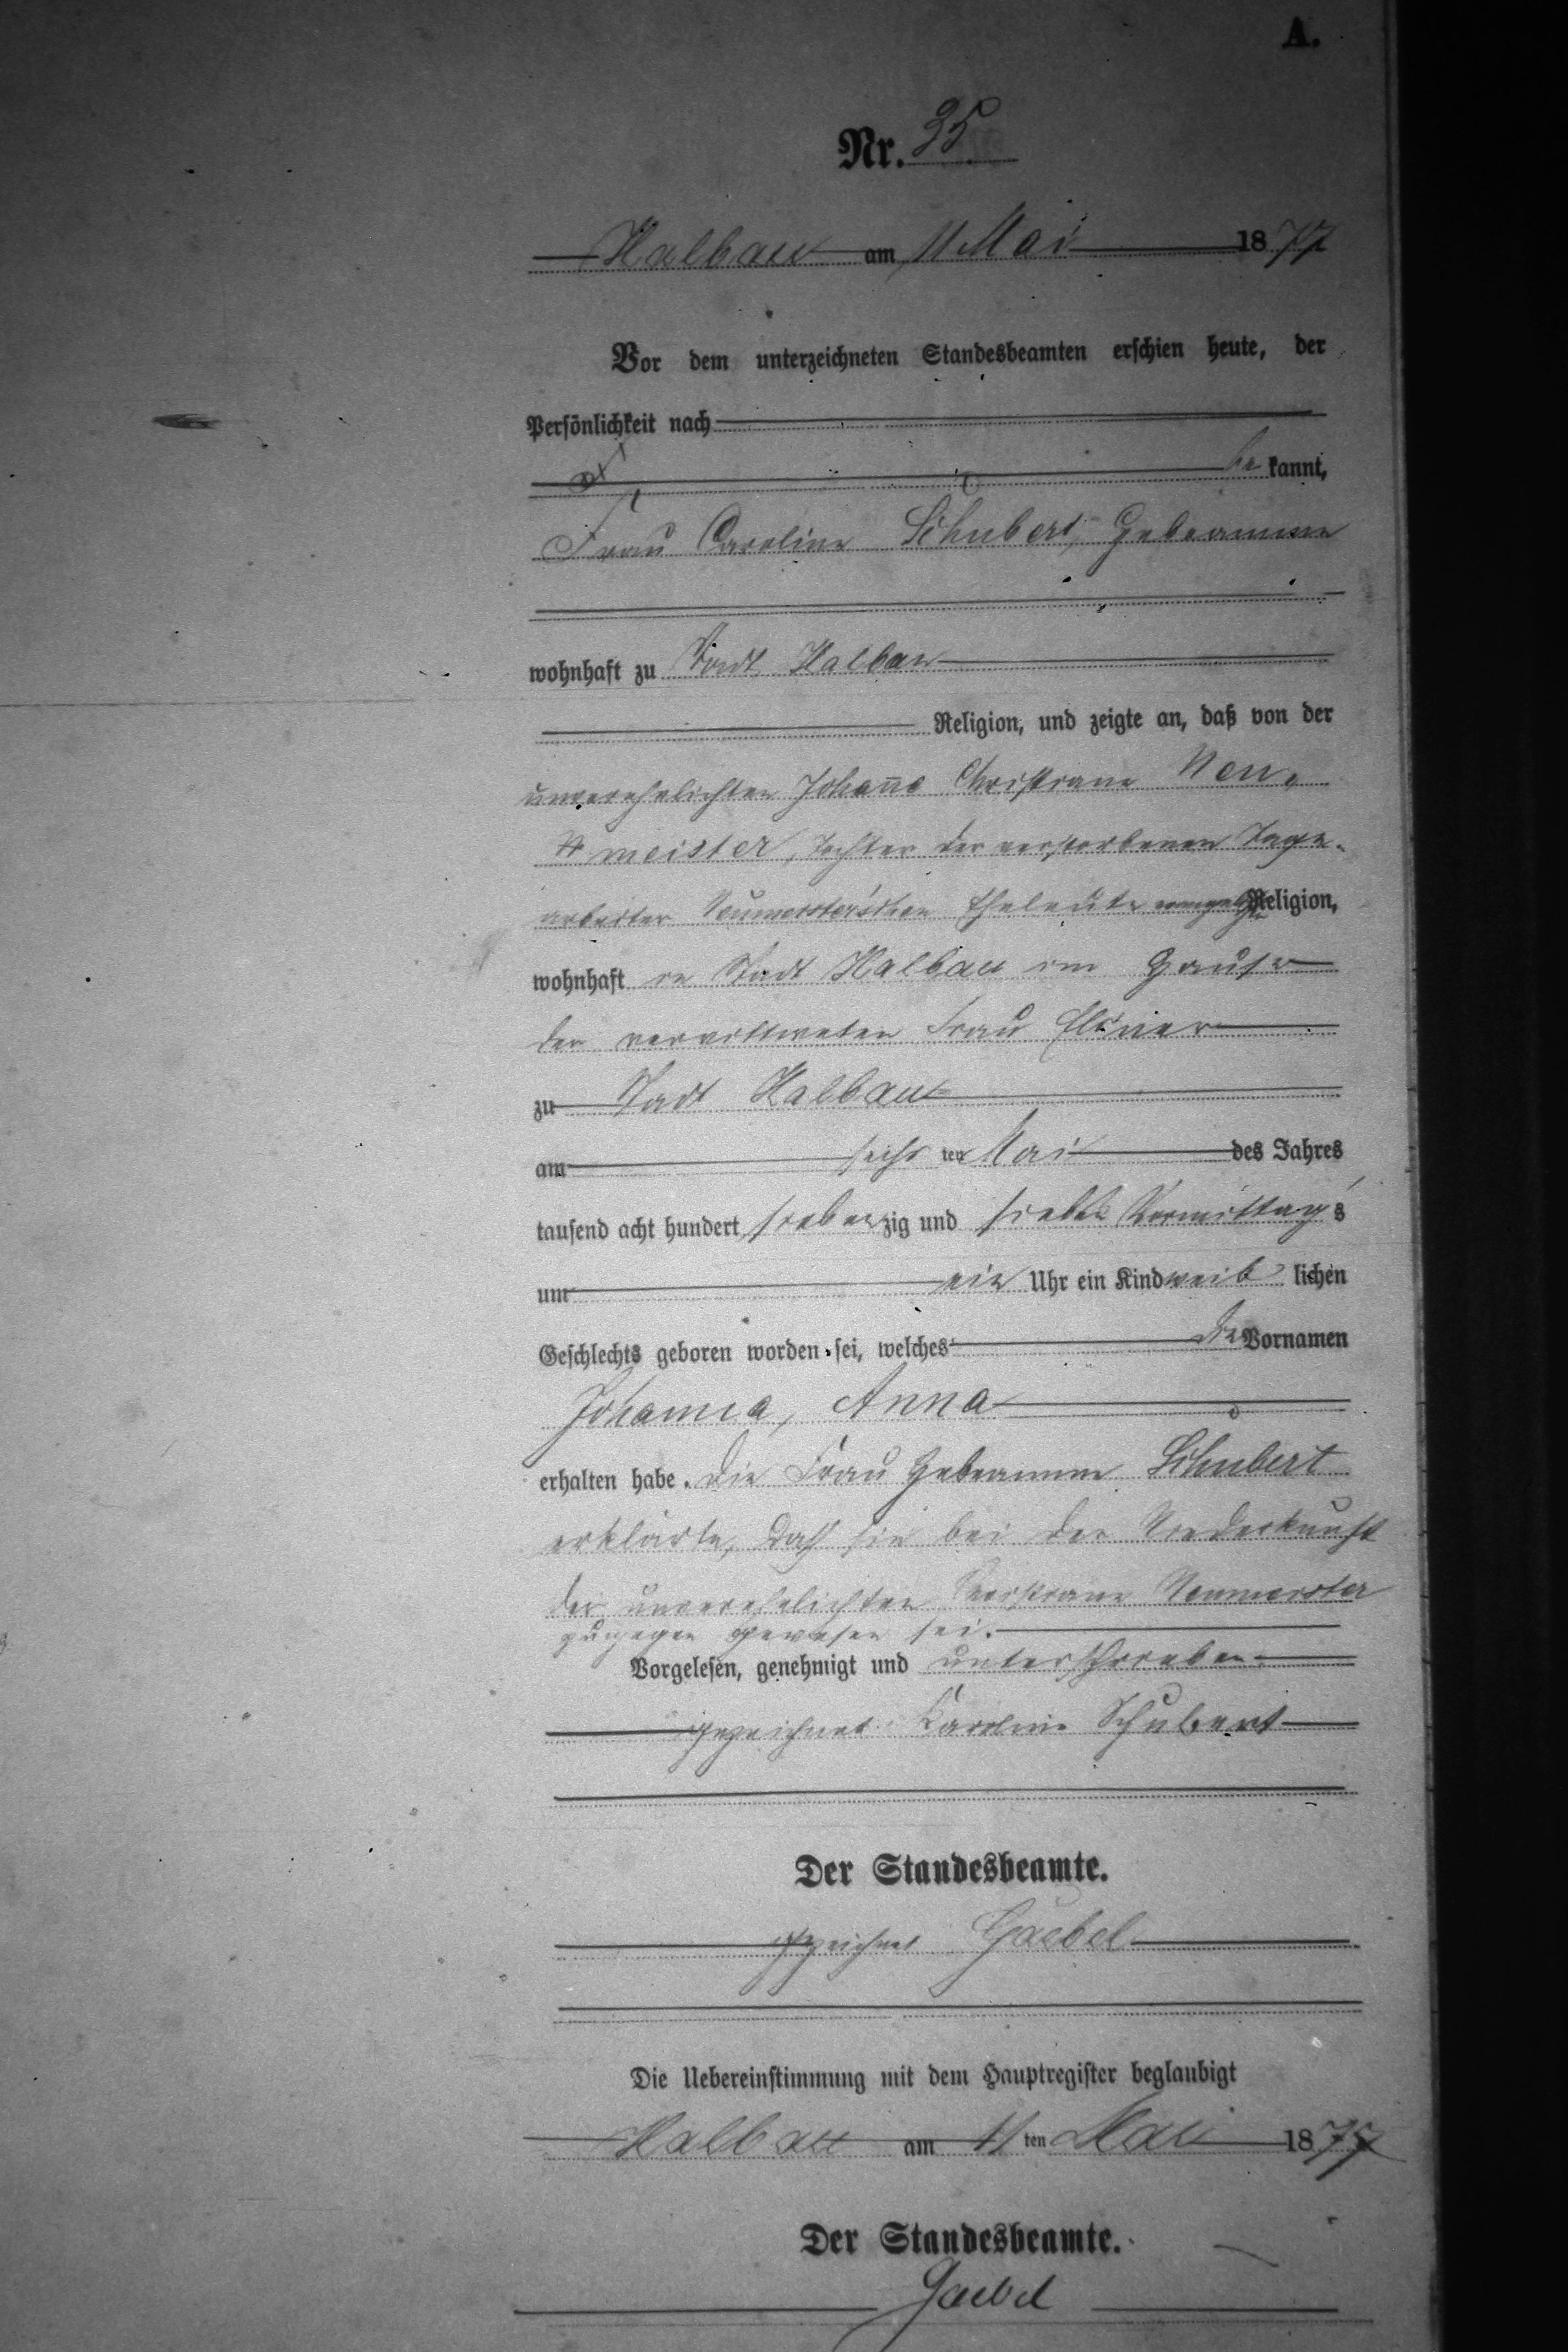 A.
Nr. 35
Halbau am 11 Mai 1877
Vor dem unterzeichneten Standesbeamten erschien heute, der
Persönlichkeit nach
be kannt,
Frau Caroline Schubert, Hebeamme
wohnhaft zu Stadt Halbau
Religion, und zeigte an, daß von der
unverehelichten Johanne Christiane Neu-
meister, Tochter der verstorbenen Tage-
arbeiter Neumeister'schen Eheleute Religion,
wohnhaft in Stadt Halbau im Hause
der verwittweten Frau
zu Stadt Halbau
am sechs ten Mai des Jahres
tausend acht hundert siebenzig und sieben Vormittags
um ein Uhr ein Kind weiblichen
Geschlechts geboren worden sei, welches die Vornamen
Johanna, Anna
erhalten habe. Die Frau Hebeamme Schubert
erklärte, daß sie bei der Niederkunft
der unverehelichten Christiane Neumeister
zugegen gewesen sei.
Vorgelesen, genehmigt und unterschrieben
gezeichnet Karoline Schubert
Der Standesbeamte.
gezeichnet Gaebel
Die Uebereinstimmung mit dem Hauptregister beglaubigt
Halbau am 11 ten Mai 1877
Der Standesbeamte.
Gaebel